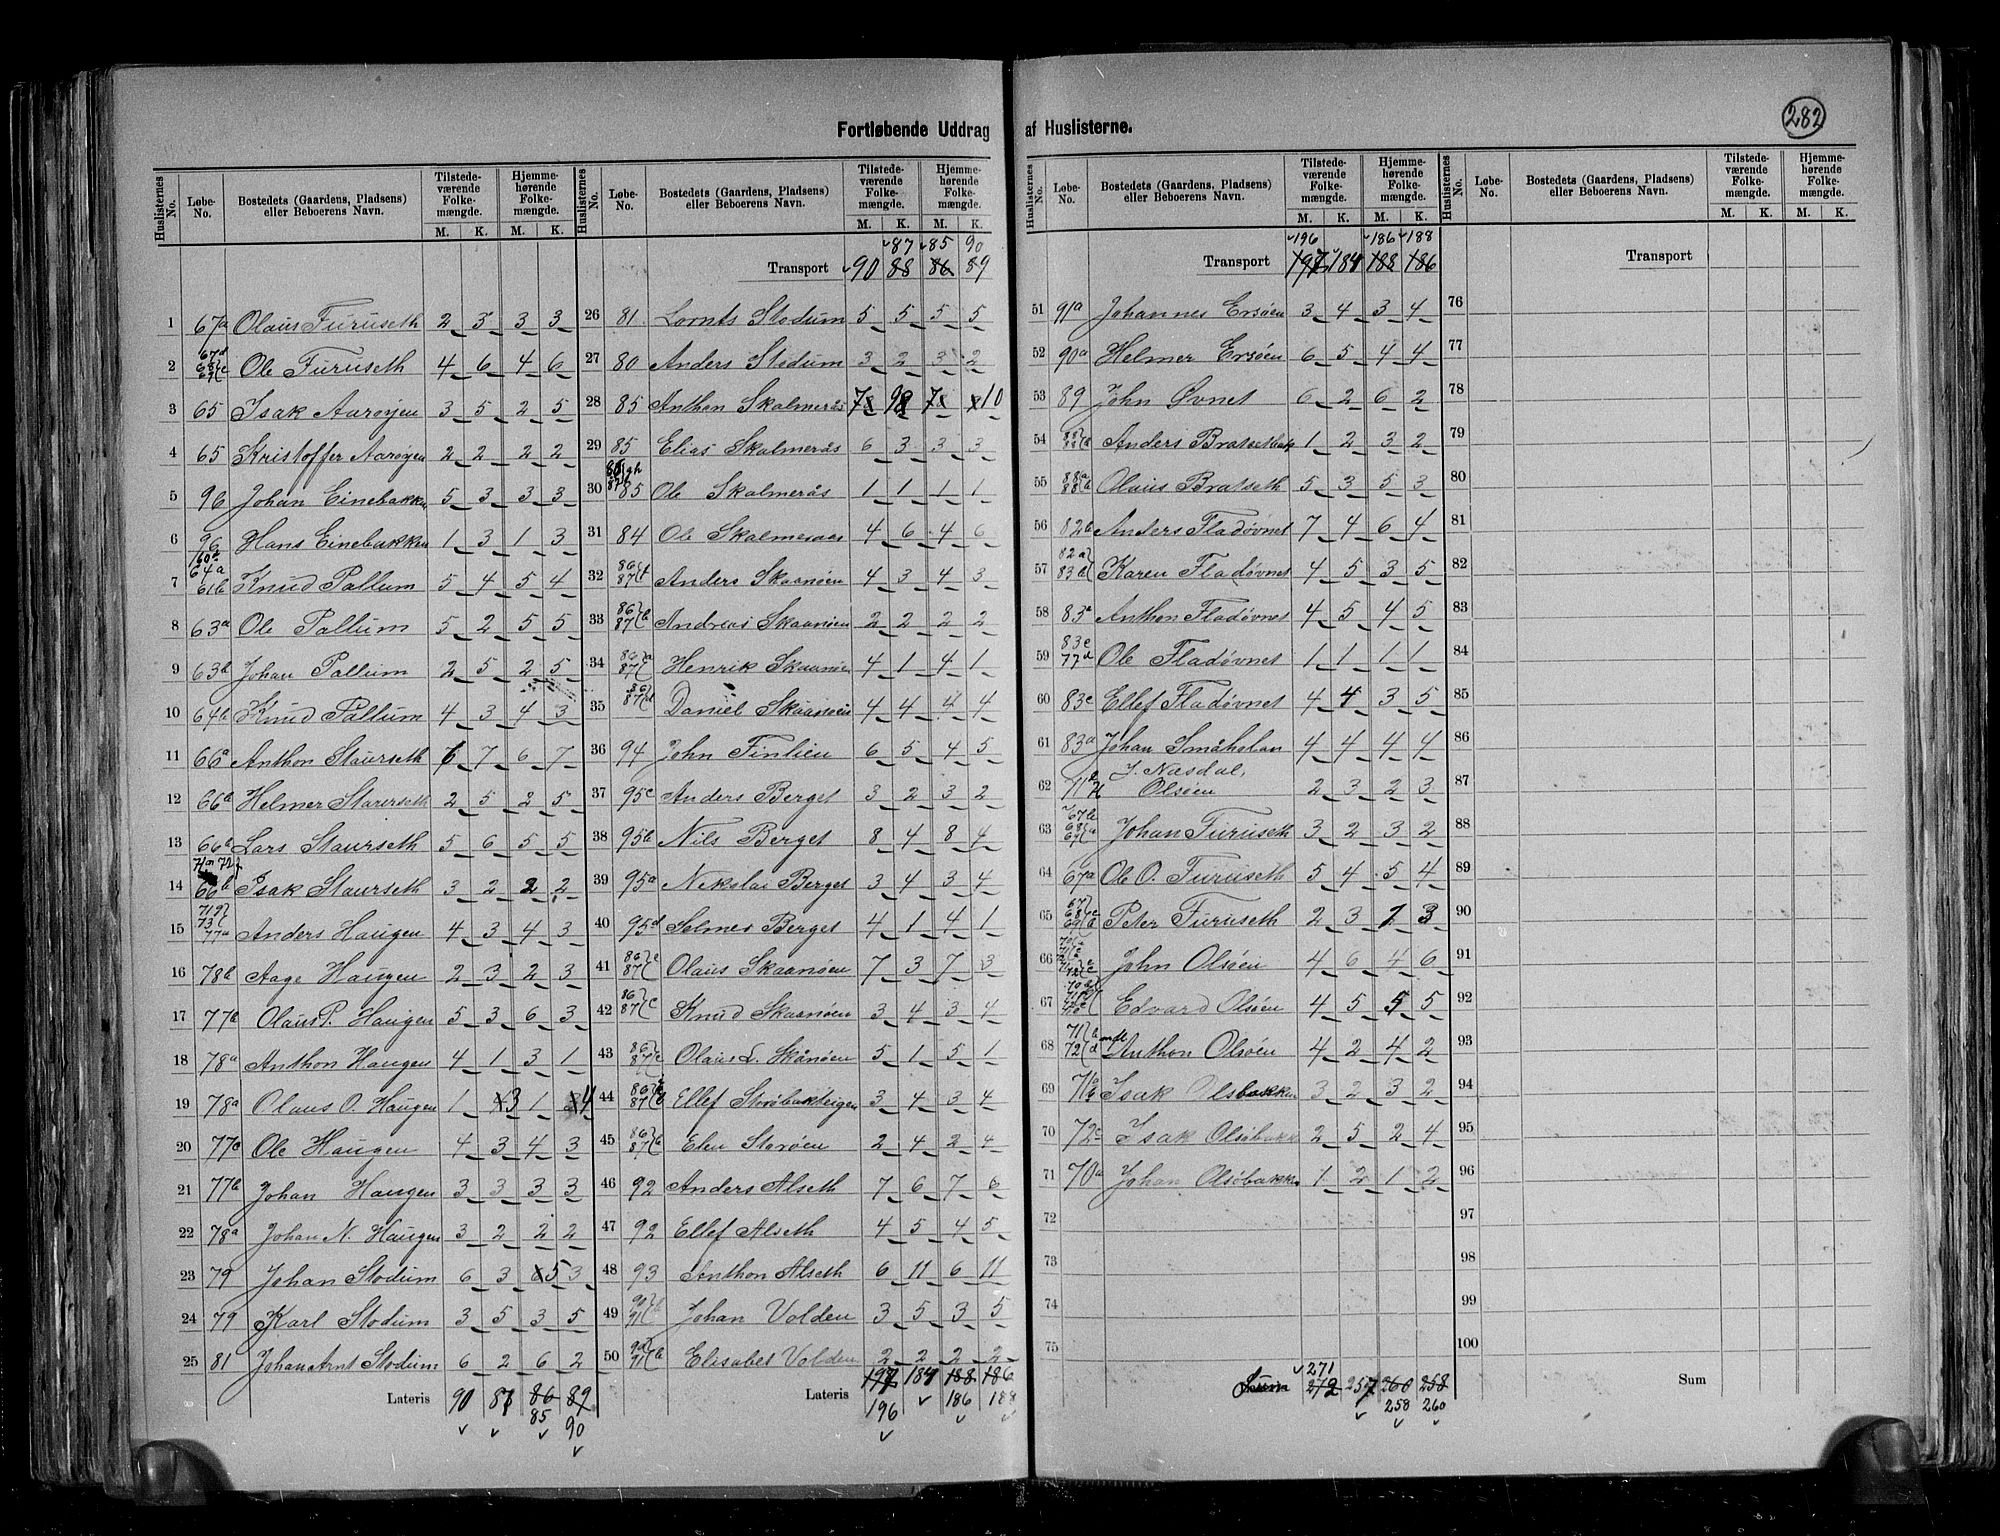 282
Fortløbende Uddrag af Huslisterne.
Huslisternes No. Løbe-No. Bostedets (Gaardens, Pladsens) eller Beboerens Navn. Tilstede-værende Folke-mængde. M. K. Hjemme-hørende Folke-mængde. M. K.
1 67a Olaus Furuseth 2 3 3 3
2 Ole Furuseth 4 6 4 6
3 65 Isak Aarøyen 3 5 2 5
4 65 Kristoffer Aarøyen 2 2 2 2
5 96 Johan Einebakken 5 3 3 3
6 96 Hans Einebakken 1 3 1 3
7 64a 61b Knud Pallum 5 4 5 4
8 63a Ole Pallum 5 2 5 5
9 63b Johan Pallum 2 5 2 5
10 64b Knud Pallum 4 3 4 3
11 66a Anthon Staurseth 7 6 7
12 66a Helmer Staurseth 2 5 2 5
13 66a Lars Staurseth 5 6 5 5
14 66b Isak Staurseth 3 2 2 2
15 77a Anders Haugen 4 3 4 3
16 78b Aage Haugen 2 3 2 3
17 77b Olaus P. Haugen 5 3 6 3
18 78a Anthon Haugen 4 1 3 1
19 78a Olaus O. Haugen 1 3 1 4
20 77c Ole Haugen 4 3 4 3
21 77b Johan Haugen 3 3 3 3
22 78a Johan N. Haugen 3 2 2 2
23 79 Johan Stodum 6 3 5 3
24 79 Karl Stodum 3 5 3 5
25 81 Johan Arnt Stodum 6 2 6 2
Lateris 90 87 86 89
85 90
Huslisternes No. Løbe-No. Bostedets (Gaardens, Pladsens) eller Beboerens Navn. Tilstede-værende Folke-mængde. M. K. Hjemme-hørende Folke-mængde. M. K.
87 85 90
Transport 90 88 86 89
26 81 Lornts Stodum 5 5 5 5
27 80 Anders Stodum 3 2 3 2
28 85 Anthon Skalmerås 7 9 7 10
29 85 Elias Skalmerås 6 3 3 3
30 85 Ole Skalmerås 1 1 1 1
31 84 Ole Skalmeraas 4 6 4 6
32 86 87 f Anders Skaanøen 4 3 4 3
33 86 87 b Andreas Skaanøen 2 2 2 2
34 86 87 a Henrik Skaanøen 4 1 4 1
35 86 87 d Daniel Skaanøen 4 4 4 4
36 94 John Finlien 6 5 4 5
37 95c Anders Berget 3 2 3 2
38 95b Nils Berget 8 4 8 4
39 95a Nikolai Berget 3 4 3 4
40 95d Selmer Berget 4 1 4 1
41 86 87 e Olaus Skaanøen 7 3 7 3
42 86 87 c Knud Skaanøen 3 4 3 4
43 86 87 c Olaus L. Skånøen 5 1 5 1
44 86 87 Ellef Storøbakteigen 3 4 3 4
45 86 87 Elen Storøen 2 4 2 4
46 92 Anders Alseth 7 6 7 6
47 92 Ellef Alseth 4 5 4 5
48 93 Anthon Alseth 6 11 6 11
49 90 91 b Johan Volden 3 5 3 5
50 90 91 b Elisabet Volden 2 2 2 2
Lateris 197 184 188 186
196 186 188
Huslisternes No. Løbe-No. Bostedets (Gaardens, Pladsens) eller Beboerens Navn. Tilstede-værende Folke-mængde. M. K. Hjemme-hørende Folke-mængde. M. K.
196 186 188
Transport 197 184 188 186
51 91a Johannes Ersøen 3 4 3 4
52 90a Helmer Ersøen 6 5 4 4
53 89 John Øvnet 6 2 6 2
54 Anders Bratsethbak 1 2 3 2
55 88a 88b Olaus Bratseth 5 3 5 3
56 82b Anders Fladøvnet 7 4 6 4
57 82a 83d Karen Fladøvnet 4 5 3 5
58 83a Anthon Fladøvnet 4 5 4 5
59 83c 77d Ole Fladøvnet 1 1 1 1
60 83c Ellef Fladøvnet 4 4 3 5
61 83a Johan Småholan 4 4 4 4
62 J. Næsdal,
Olsøen 2 3 2 3
63 Johan Furuseth 3 2 3 2
64 67a Ole O. Furuseth 5 4 5 4
65 Peter Furuseth 2 3 1 3
66 John Olsøen 4 6 4 6
67 Edvard Olsøen 4 5 5 5
68 Anthon Olsøen 4 2 4 2
69 Isak Olsbakken 3 2 3 2
70 72c Isak Olsøbakk 2 5 2 4
71 70a Johan Olsøbakken 1 2 1 2
72
73
74
75
271
Sum 272 257 260 258
258 260
Huslisternes No. Løbe-No. Bostedets (Gaardens, Pladsens) eller Beboerens Navn. Tilstede-værende Folke-mængde. M. K. Hjemme-hørende Folke-mængde. M. K.
Transport
76
77
78
79
80
81
82
83
84
85
86
87
88
89
90
91
92
93
94
95
96
97
98
99
100
Sum